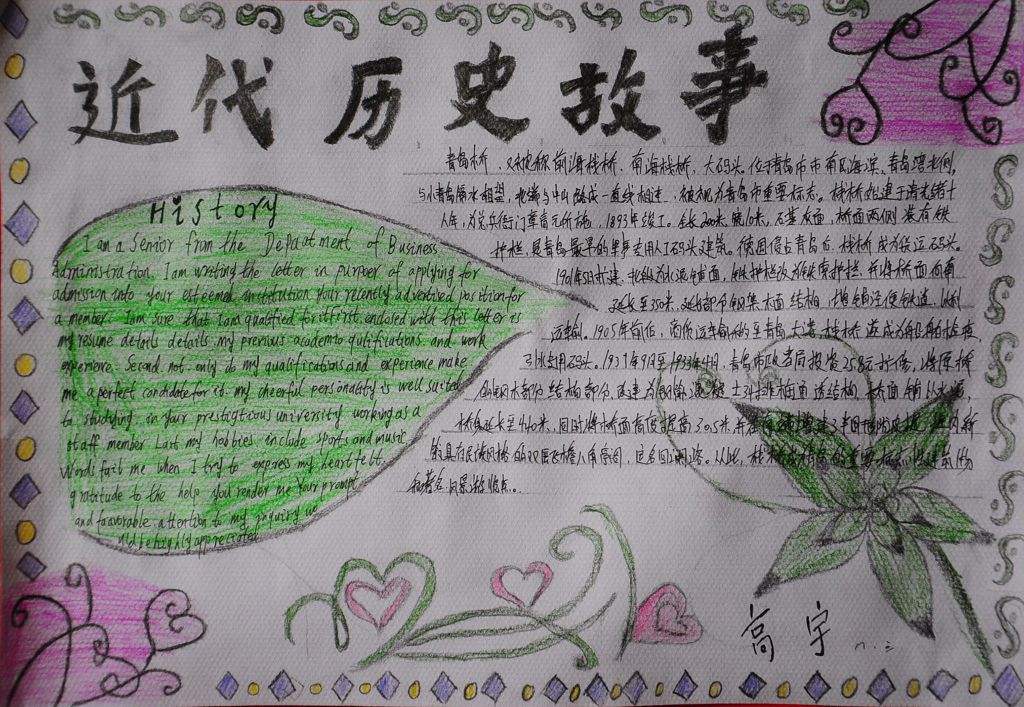 近代历史故事
History
I am a Senior from the Depaatment of Business
Administration. I am writing the letter in purpser of applying for
admission into your esteemed institution your recently advertised position for
a member. I am sure that I am qualified for it first enclosed with this letter is
my resume details details my previous academic qutifications and work
experience. Second. not only do my qualifications and experience make
me a perfect condidate for it. my cheerful personality is well suited
to studying in your prestigious university working as a
staff member Last my hobbies include sports and music.
Words fail me when I try to express my heartfelt
gratitude to the help you render me Your prompt
and favorable attention to my inquiry wo
uld be highly appreciated
青岛栈桥、又被称前海栈桥、南海栈桥、大码头,位于青岛市市南区海滨、青岛湾北侧,
与小青岛隔水相望,北端与中山路成一直线相连,被视为青岛市重要标志。栈桥始建于清光绪十
八年,为总兵衙门章高元所建,1893年竣工。全长200米,宽10米,石基灰面,桥面两侧装有铁
护栏,是青岛最早的军事专用人工码头建筑。德国侵占青岛后,栈桥成为货运码头。
1901年5月扩建,北段为水泥铺面,
延长至350米,延长部分钢架木面结构,增铺轻便铁道,以利
运输。1905年前后,
引水专用码头。1931年9月至1933年4月,青岛市政当局投资25.8万
将原桥
钢木部分结构部分,改建为钢筋混凝土
桥面
桥身延长至440米,同时将桥面高度提高 0.5米,并在
具有民族风格的双层飞檐八角亭阁,定名回澜阁。从此,栈桥成为青岛的重要标志
和著名风景游览点。
高宇